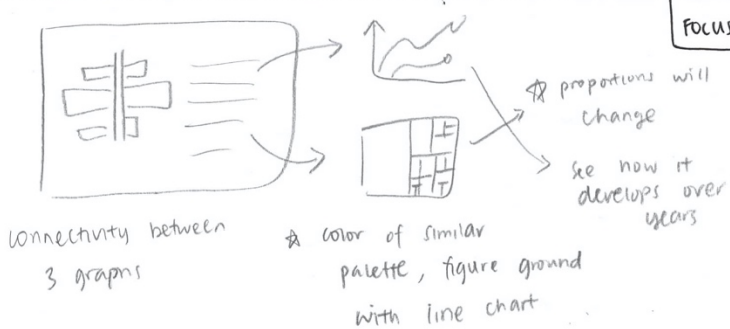 FOCUS
☆ proportions will
change
see how it
develops over
years
connectivity between
3 graphs
☆ color of similar
palette, figure ground
with line chart